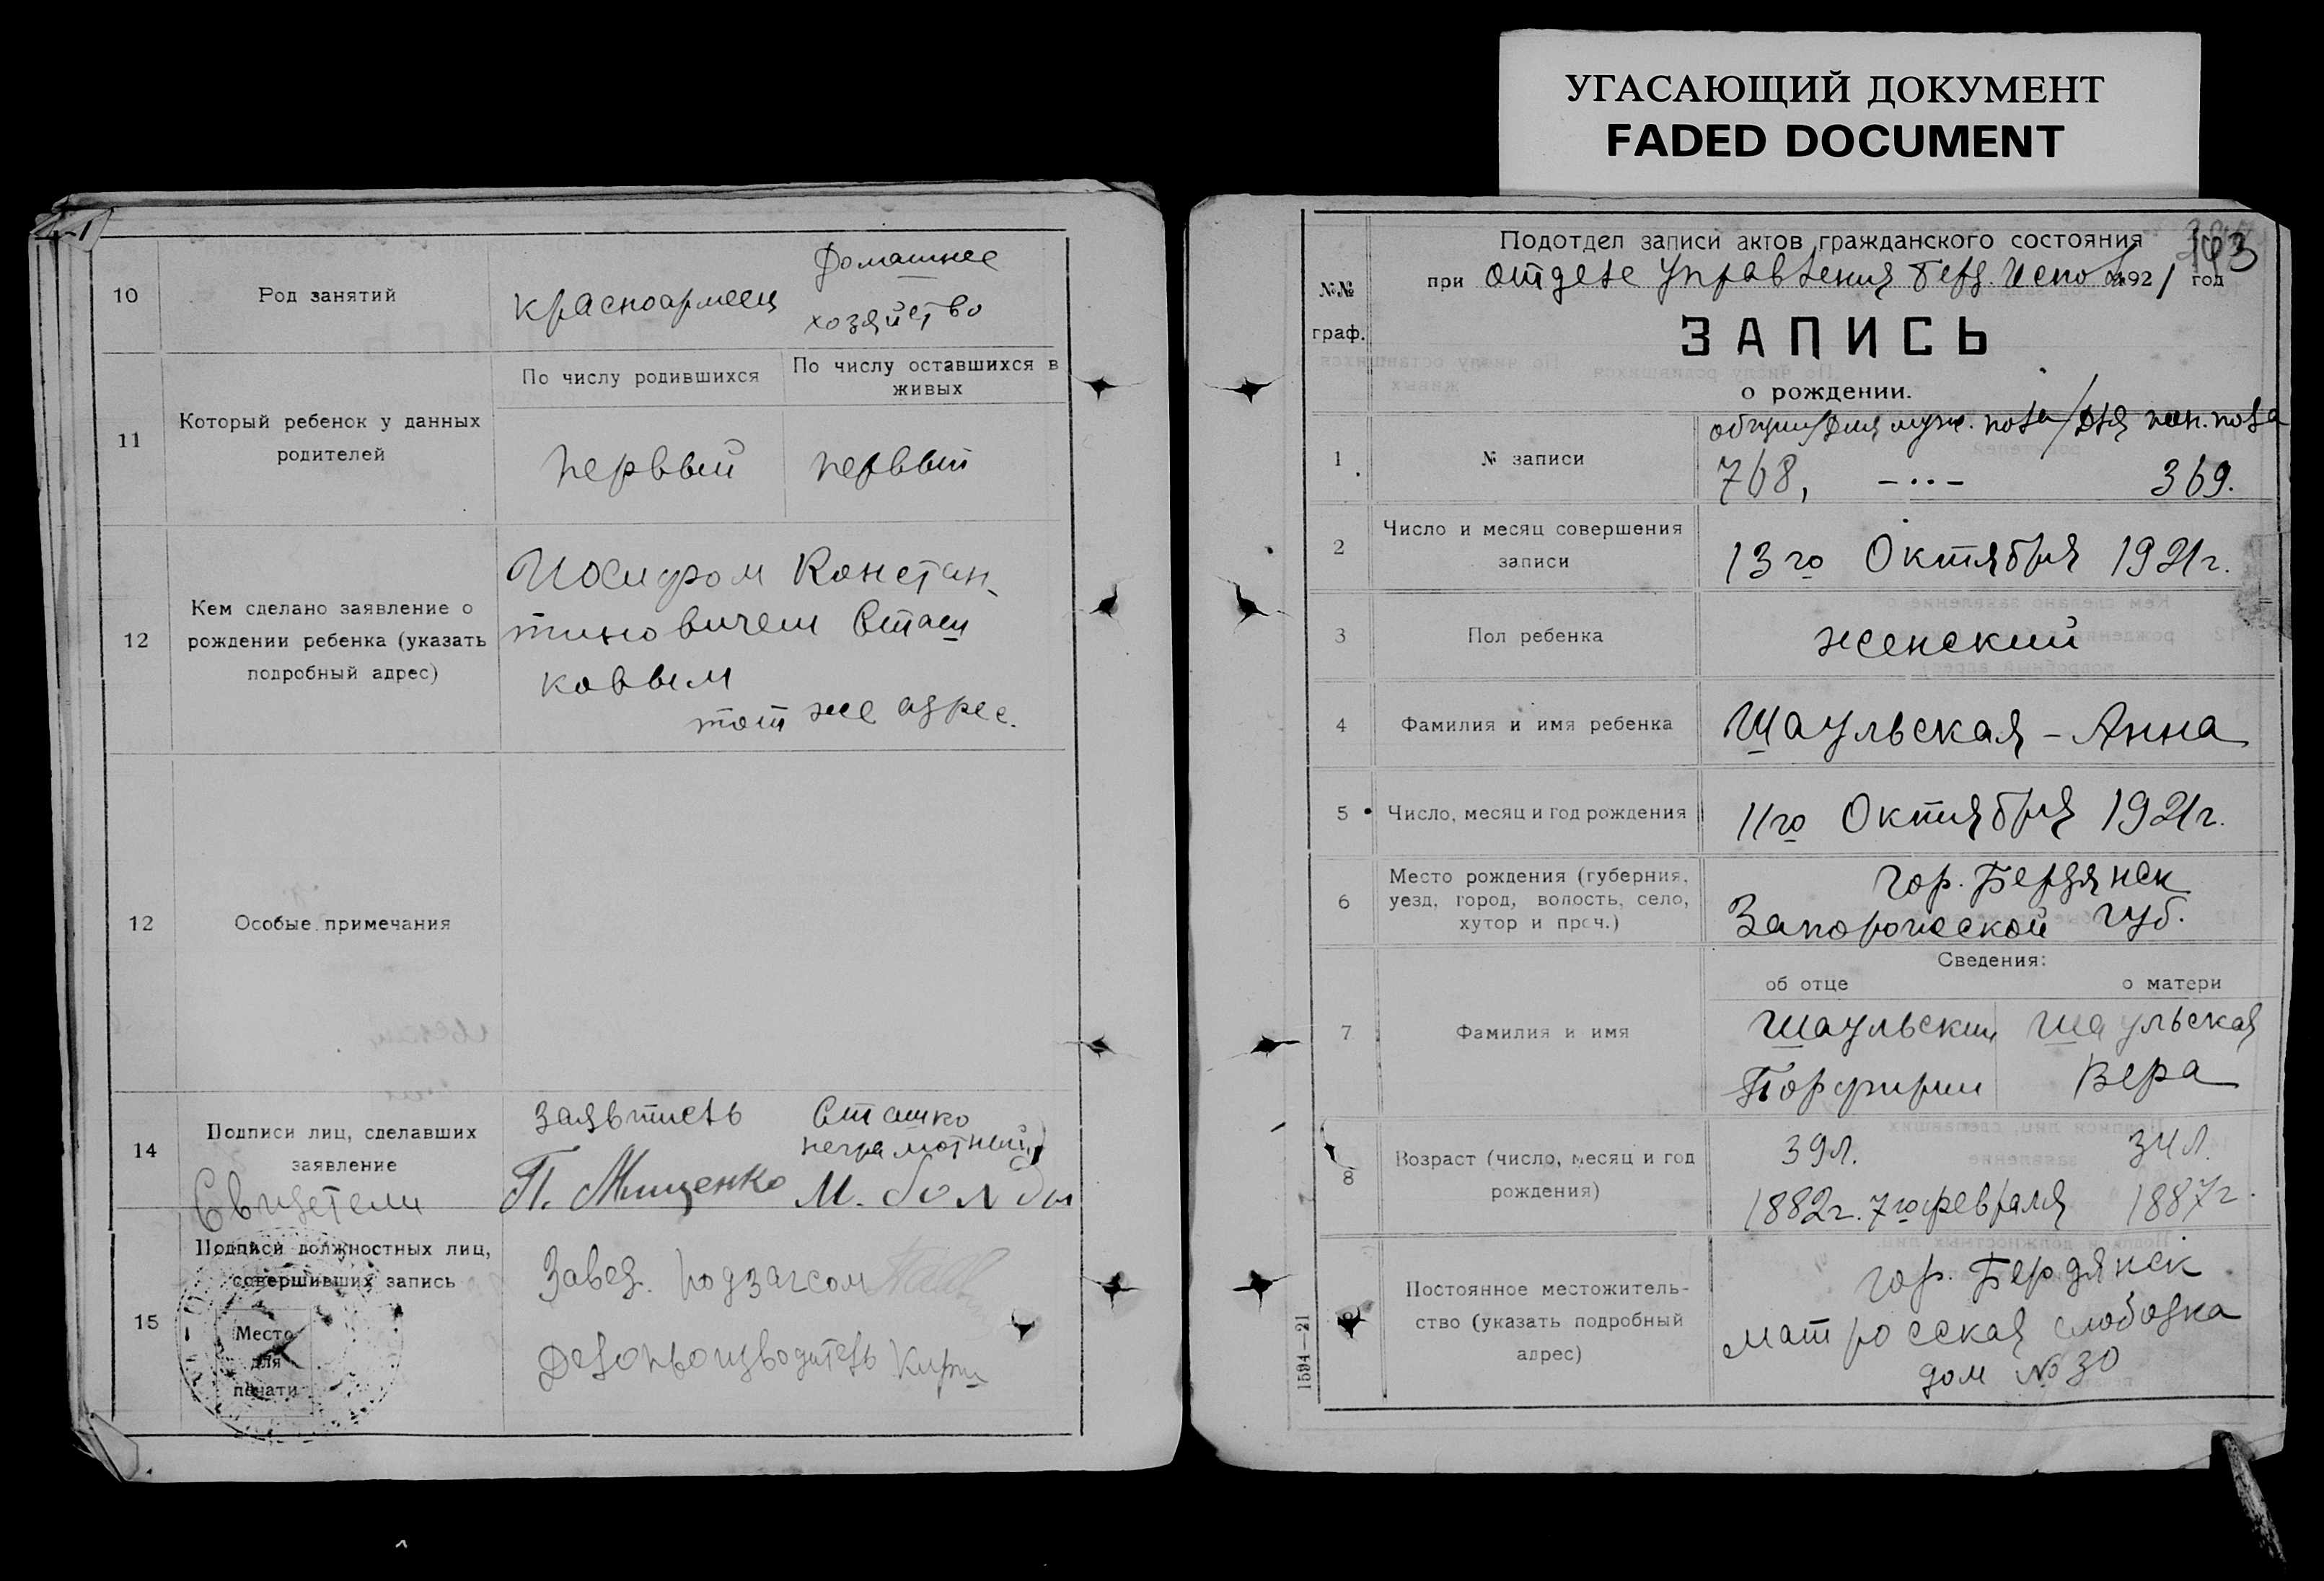 УГАСАЮЩИЙ ДОКУМЕНТ
FADED DOCUMENT
10
Род занятий
красноармеец
Домашнее
хозяйство
11
Который ребенок у данных
родителей
По числу родившихся
По числу оставшихся в
живых
первый
первый
12
Кем сделано заявление о
рождении ребенка (указать
подробный адрес)
Иосифом Констан-
тиновичем Сташ
ковым
тот же адрес.
12
Особые примечания
14
Подписи лиц, сделавших
заявление
Свидетели
Заявитель Сташко
неграмотный
П. Мищенко М.
15
Подписи должностных лиц,
совершивших запись
Место
для
печати
Завед. подзагсом
Делопроизводитель
№№
граф.
Подотдел записи актов гражданского состояния
103
при отделе Управления Берд. Испол 1921 год
ЗАПИСЬ
о рождении.
1
№ записи
общий/для муж. пола/для жен. пола
768, -··- 369.
2
Число и месяц совершения
записи
13го Октября 1921г.
3
Пол ребенка
женский
4
Фамилия и имя ребенка
Шаульская - Анна
5
Число, месяц и год рождения
11го Октября 1921г.
6
Место рождения (губерния,
уезд, город, волость, село,
хутор и проч.)
гор. Бердянск
Запорожской губ.
Сведения:
об отце
о матери
7
Фамилия и имя
Шаульский
Порфирий
Шаульская
Вера
8
Возраст (число, месяц и год
рождения)
39л.
1882г. 7го февраля
34л.
1887г.
9
Постоянное местожитель-
ство (указать подробный
адрес)
гор. Бердянск
матросская слободка
дом № 30
1594—21